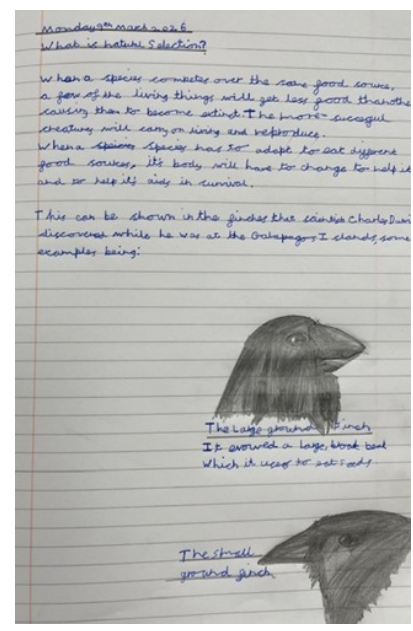 Monday 9th March 2026
What is nature Selection?
When a species competes over the same food source,
a few of the living things will get less food than othe
causing them to become extinct. The more succesful
creatures will carry on living and reproduce.
When a species has to adapt to eat different
food sources, it's body will have to change to help it
and to help it's aids in survival.
This can be shown in the finches that scientist Charles Darwi
discovered while he was at the Galapagos Islands, some
examples being:
The Large ground finch
It evovled a large, beak
which it uses to eat
The Small
ground finch